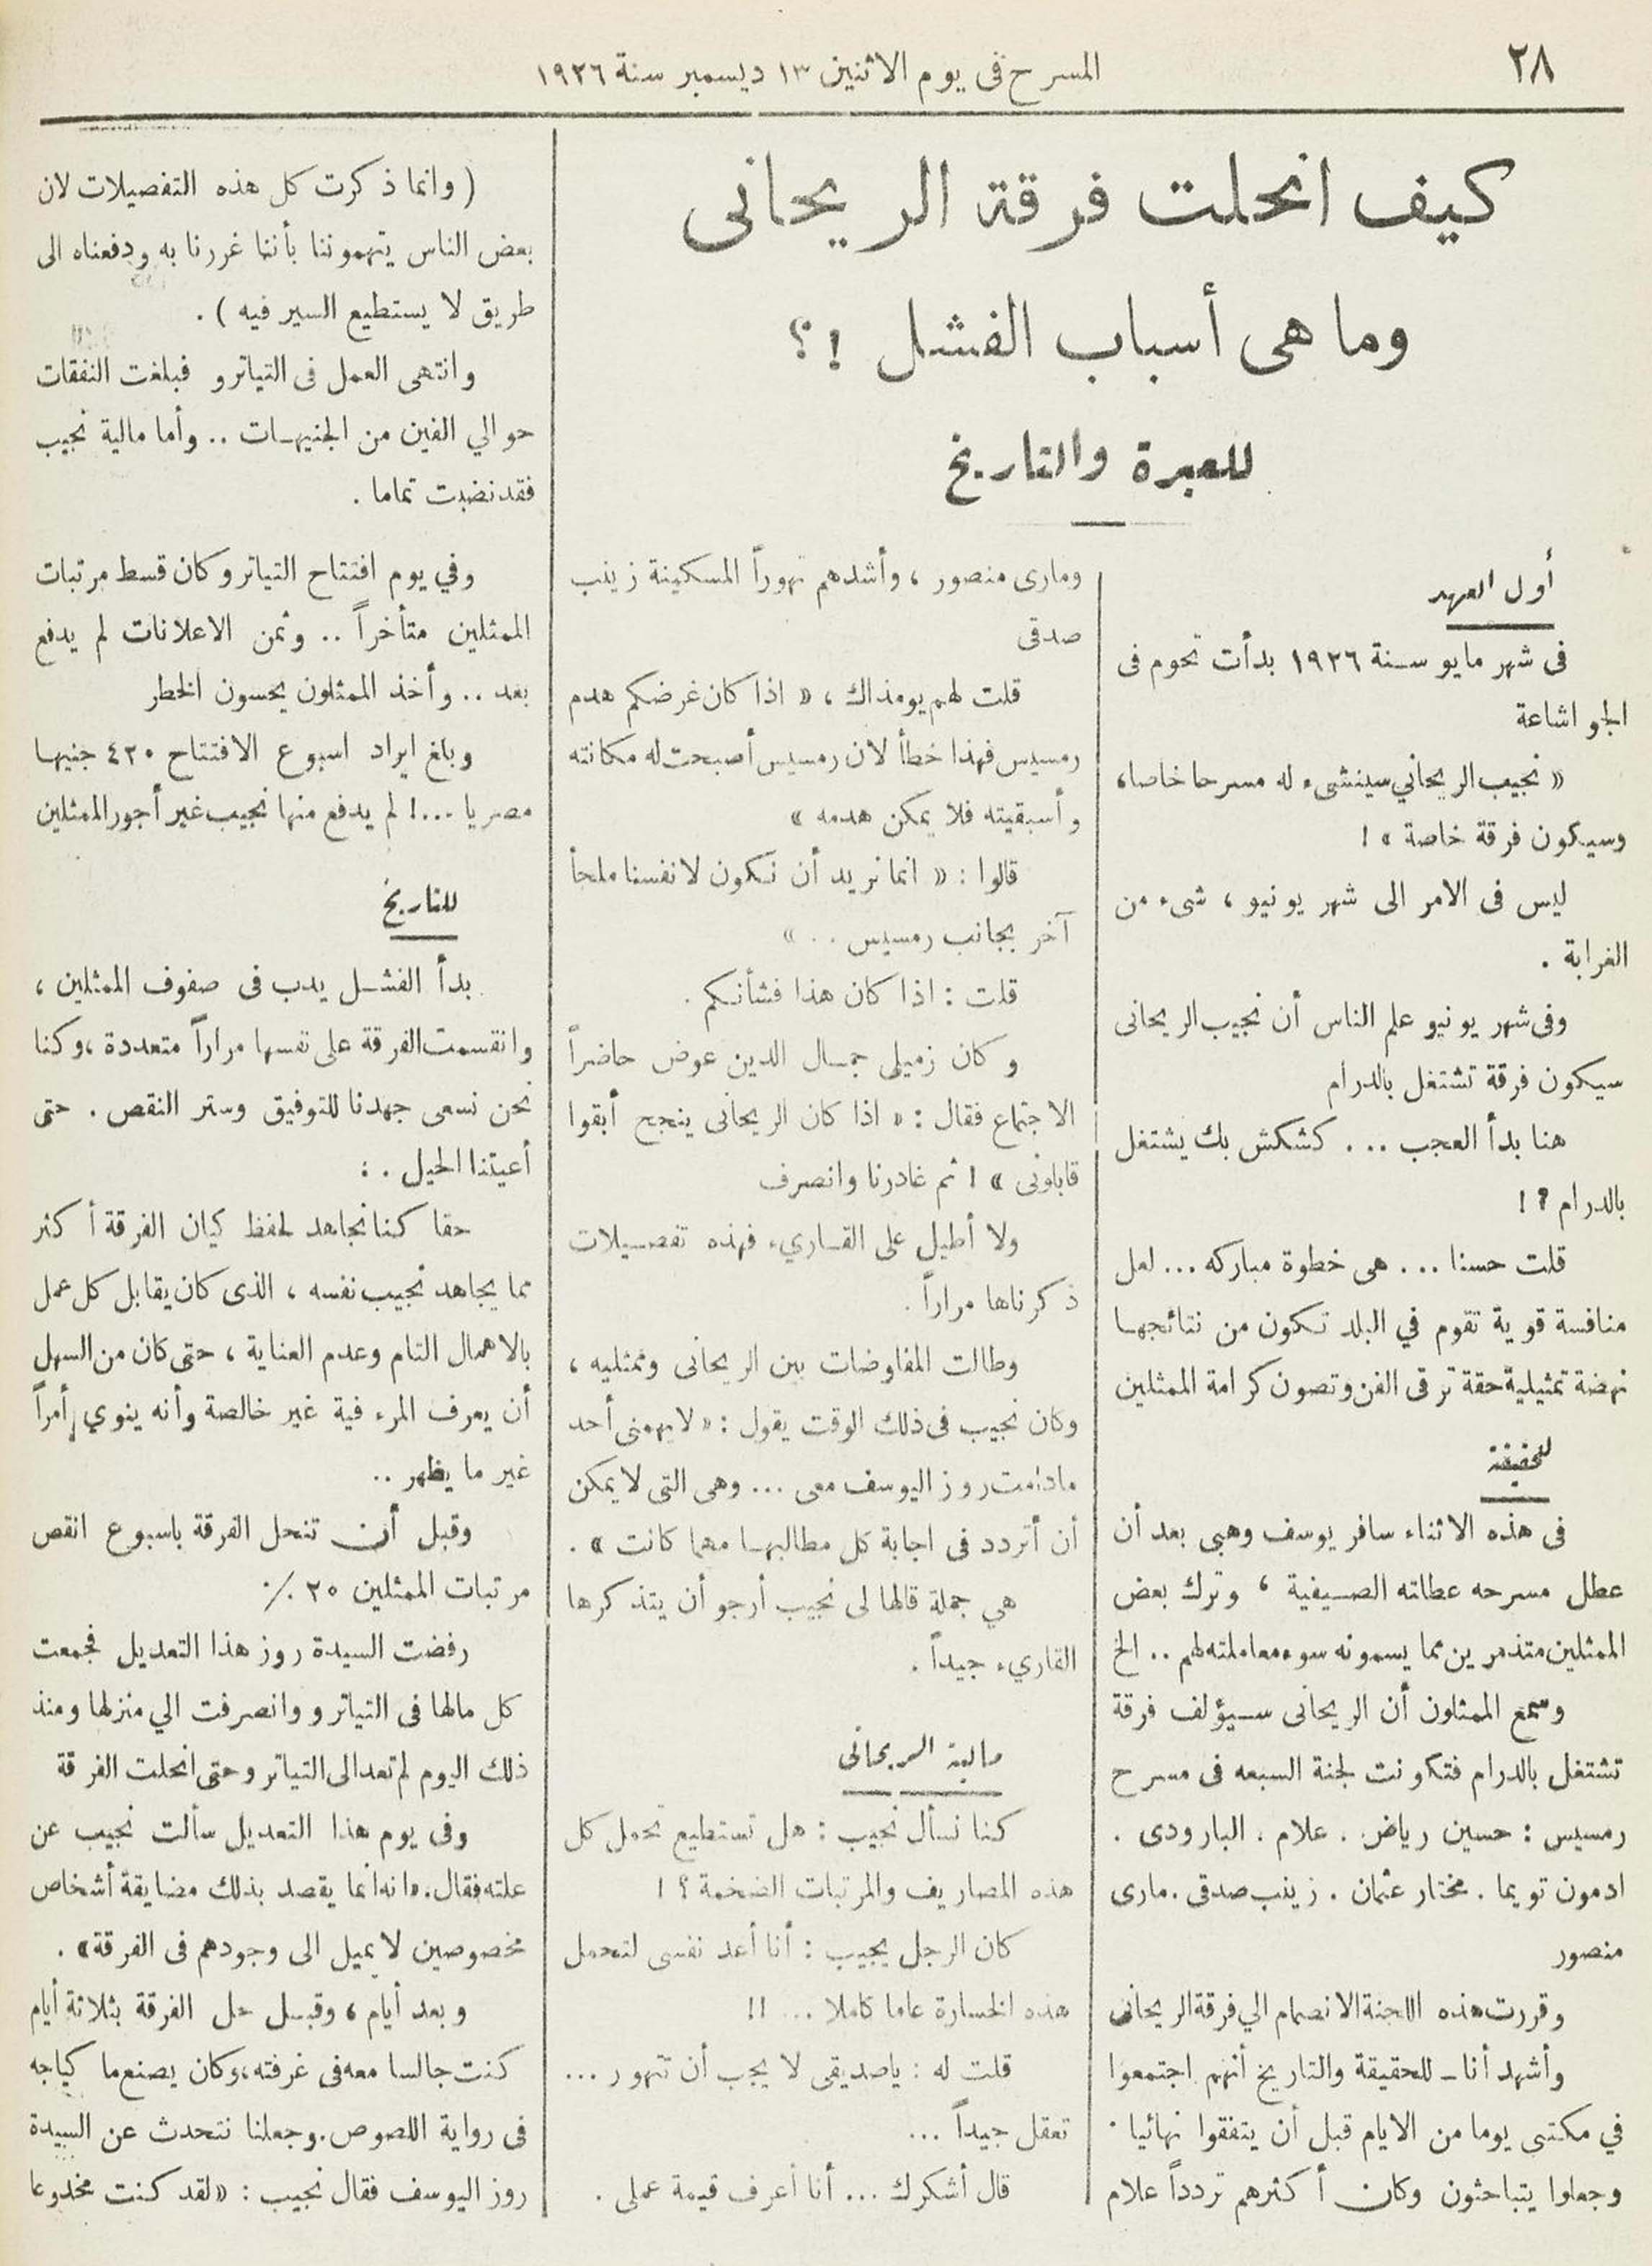 ٢٨
المسرح في يوم الاثنين ١٣ ديسمبر سنة ١٩٢٦
كيف انحلت فرقة الريحانى
وما هى أسباب الفشل !؟
للعبرة والتاريخ
أول العهد
فى شهر مايو سنة ١٩٢٦ بدأت تحوم فى
الجو اشاعة
« نجيب الريحاني سينشىء له مسرحا خاصا،
وسيكون فرقة خاصة » !
ليس فى الامر الى شهر يونيو ، شىء من
الغرابة .
وفى شهر يونيو علم الناس أن نجيب الريحانى
سيكون فرقة تشتغل بالدرام
هنا بدأ العجب ... كشكش بك يشتغل
بالدرام ؟ !
قلت حسنا ... هى خطوة مباركه ... لعل
منافسة قوية تقوم في البلد تكون من نتائجها
نهضة تمثيلية حقة ترقى الفن وتصون كرامة الممثلين
للحقيقة
فى هذه الاثناء سافر يوسف وهبى بعد أن
عطل مسرحه عطلته الصيفية ، وترك بعض
الممثلين متذمرين مما يسمونه سوء معاملته لهم .. الخ
وسمع الممثلون أن الريحانى سيؤلف فرقة
تشتغل بالدرام فتكونت لجنة السبعه فى مسرح
رمسيس : حسين رياض . علام . البارودى .
ادمون تويما . مختار عثمان . زينب صدقى . مارى
منصور
وقررت هذه اللجنة الانضمام الي فرقة الريحانى
وأشهد أنا ـ للحقيقة والتاريخ أنهم اجتمعوا
في مكتبى يوما من الايام قبل أن يتفقوا نهائيا .
وجعلوا يتباحثون وكان أكثرهم تردداً علام
ومارى منصور ، وأشدهم تهوراً المسكينة زينب
صدقى
قلت لهم يومذاك ، « اذا كان غرضكم هدم
رمسيس فهذا خطأ لان رمسيس أصبحت له مكانته
وأسبقيته فلا يمكن هدمه »
قالوا : « انما نريد أن نكون لانفسنا ملجأ
آخر بجانب رمسيس .. »
قلت : اذا كان هذا فشأنكم .
وكان زميلى جمال الدين عوض حاضراً
الاجتماع فقال : « اذا كان الريحانى ينجح أبقوا
قابلونى » ! ثم غادرنا وانصرف
ولا أطيل على القارىء فهذه تفصيلات
ذكرناها مراراً .
وطالت المفاوضات بين الريحانى وممثليه ،
وكان نجيب فى ذلك الوقت يقول : « لا يهمنى أحد
مادامت روز اليوسف معى ... وهى التى لا يمكن
أن أتردد فى اجابة كل مطالبها مهما كانت » .
هي جملة قالها لى نجيب أرجو أن يتذكرها
القارىء جيداً .
مالية الريحانى
كنا نسأل نجيب : هل تستطيع تحمل كل
هذه المصاريف والمرتبات الضخمة ؟ !
كان الرجل يجيب : أنا أعد نفسى لتحمل
هذه الخسارة عاما كاملا ... !!
قلت له : ياصديقى لا يجب أن تتهور ...
تعقل جيداً ...
قال أشكرك ... أنا أعرف قيمة عملى .
( وانما ذكرت كل هذه التفصيلات لان
بعض الناس يتهموننا بأننا غررنا به ودفعناه الى
طريق لا يستطيع السير فيه ) .
وانتهى العمل فى التياترو فبلغت النفقات
حوالي الفين من الجنيهات .. وأما مالية نجيب
فقد نضبت تماما .
وفي يوم افتتاح التياترو كان قسط مرتبات
الممثلين متأخراً .. وثمن الاعلانات لم يدفع
بعد .. وأخذ الممثلون يحسون الخطر
وبلغ ايراد اسبوع الافتتاح ٤٣٠ جنيها
مصريا ...! لم يدفع منها نجيب غير أجور الممثلين
للتاريخ
بدأ الفشل يدب فى صفوف الممثلين ،
وانقسمت الفرقة على نفسها مراراً متعددة ، وكنا
نحن نسعى جهدنا للتوفيق وستر النقص . حتى
أعيتنا الحيل . :
حقا كنا نجاهد لحفظ كيان الفرقة أكثر
مما يجاهد نجيب نفسه ، الذى كان يقابل كل عمل
بالاهمال التام وعدم العناية ، حتى كان من السهل
أن يعرف المرء فية غير خالصة وأنه ينوي أمراً
غير ما يظهر ..
وقبل أن تنحل الفرقة باسبوع انقص
مرتبات الممثلين ٢٥ ٪
رفضت السيدة روز هذا التعديل فجمعت
كل مالها فى التياترو وانصرفت الي منزلها ومنذ
ذلك اليوم لم تعد الى التياترو حتى انحلت الفرقة
وفى يوم هذا التعديل سألت نجيب عن
علته فقال . « انه انما يقصد بذلك مضايقة أشخاص
مخصوصين لا يميل الى وجودهم فى الفرقة» .
وبعد أيام ، وقبل حل الفرقة بثلاثة أيام
كنت جالسا معه فى غرفته ، وكان يصنع ما كياجه
فى رواية اللصوص . وجعلنا نتحدث عن السيدة
روز اليوسف فقال نجيب : « لقد كنت مخدوعا